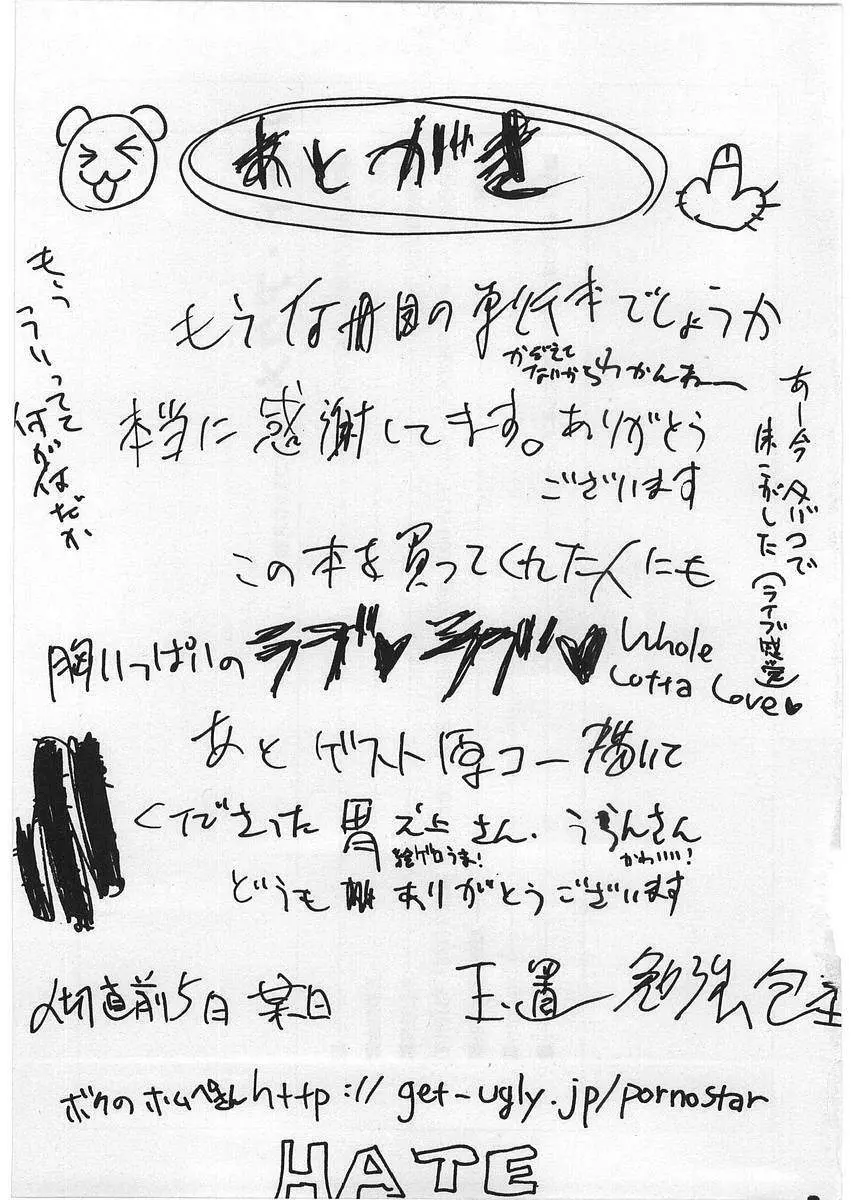 あとがき
もう何冊目の単行本でしょうか
かぞえて
ないからわかんねー
もう
こういってて
何が何だか
本当に感謝してます。ありがとう
ございます
あー今タバコで
床こがした(ライブ感覚)
この本を買ってくれた人にも
胸いっぱいのラブ♥ラブ♥
Whole
Lotta Love♥
あとゲスト原コー描いて
くださった胃之上さん、うらんさん
絵ゲロうま!
かわいい!
どうもありがとうございます
〆切直前5日
玉置勉強
ボクのホムペさん http://get-ugly.jp/pornostar
HATE